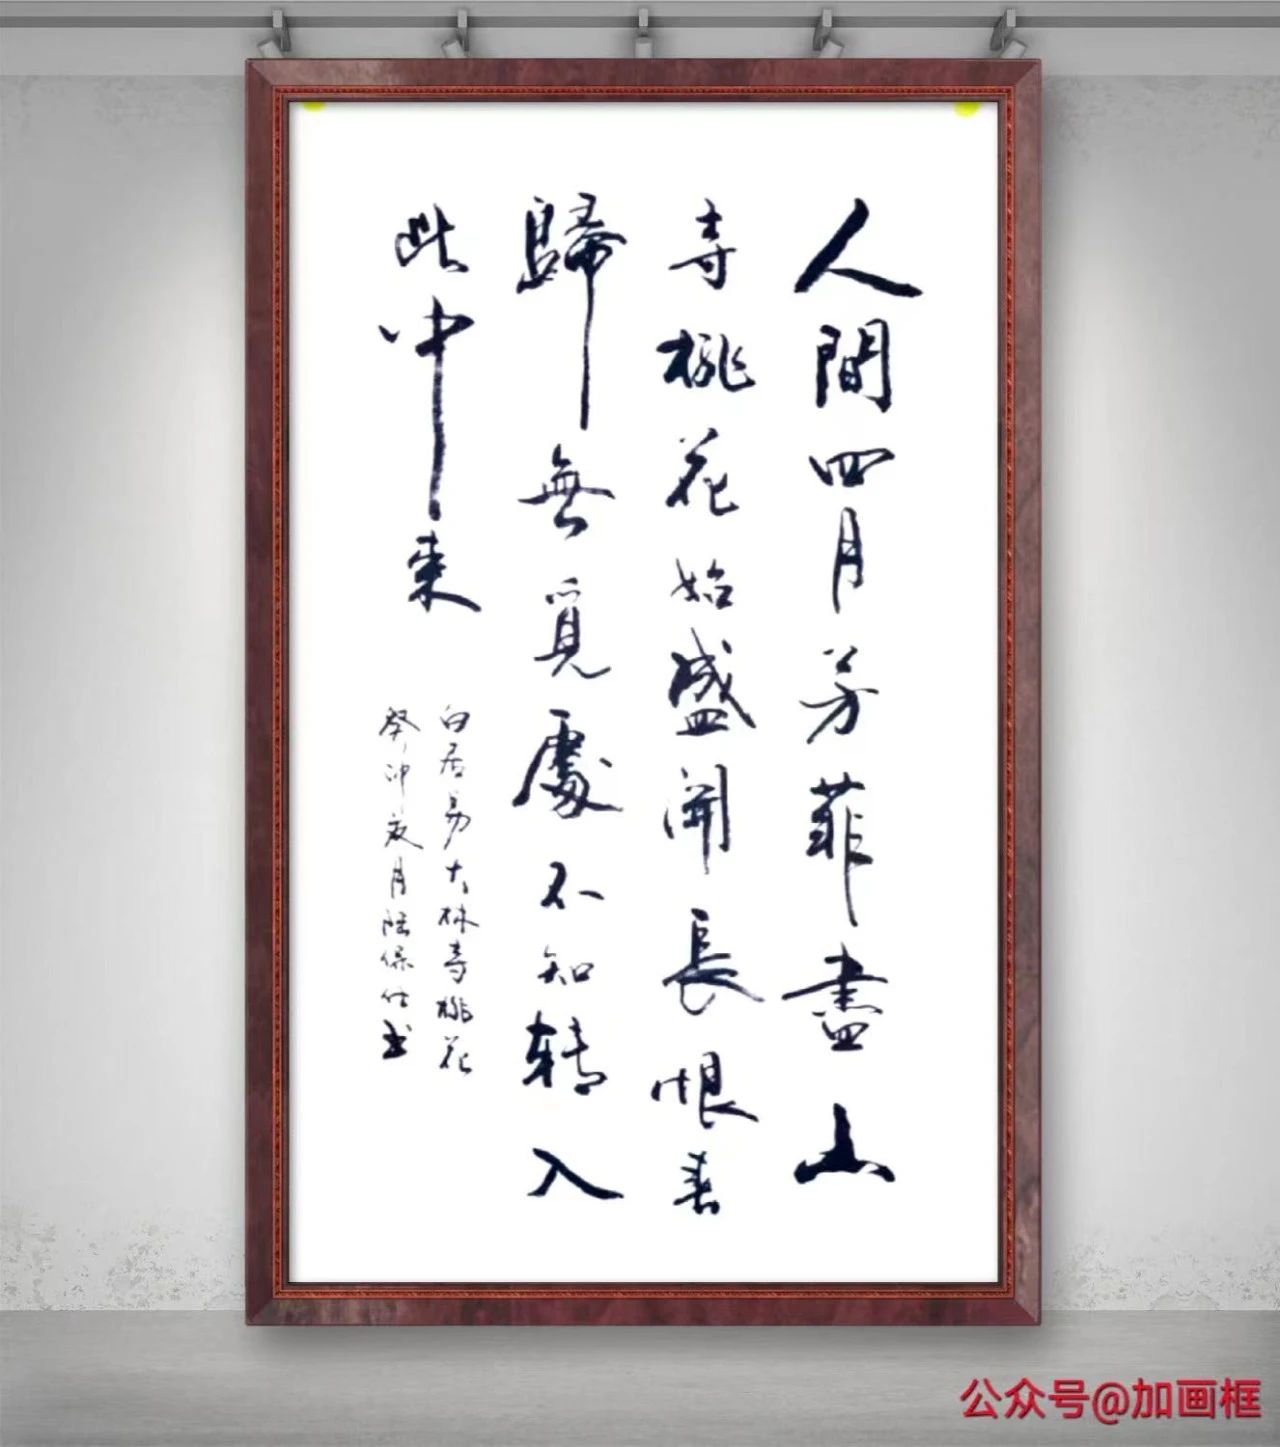 人間四月芳菲盡山
寺桃花始盛開長恨春
歸無覓處不知轉入
此中來
白居易大林寺桃花
癸卯夏月陸保仕书
公众号@加画框